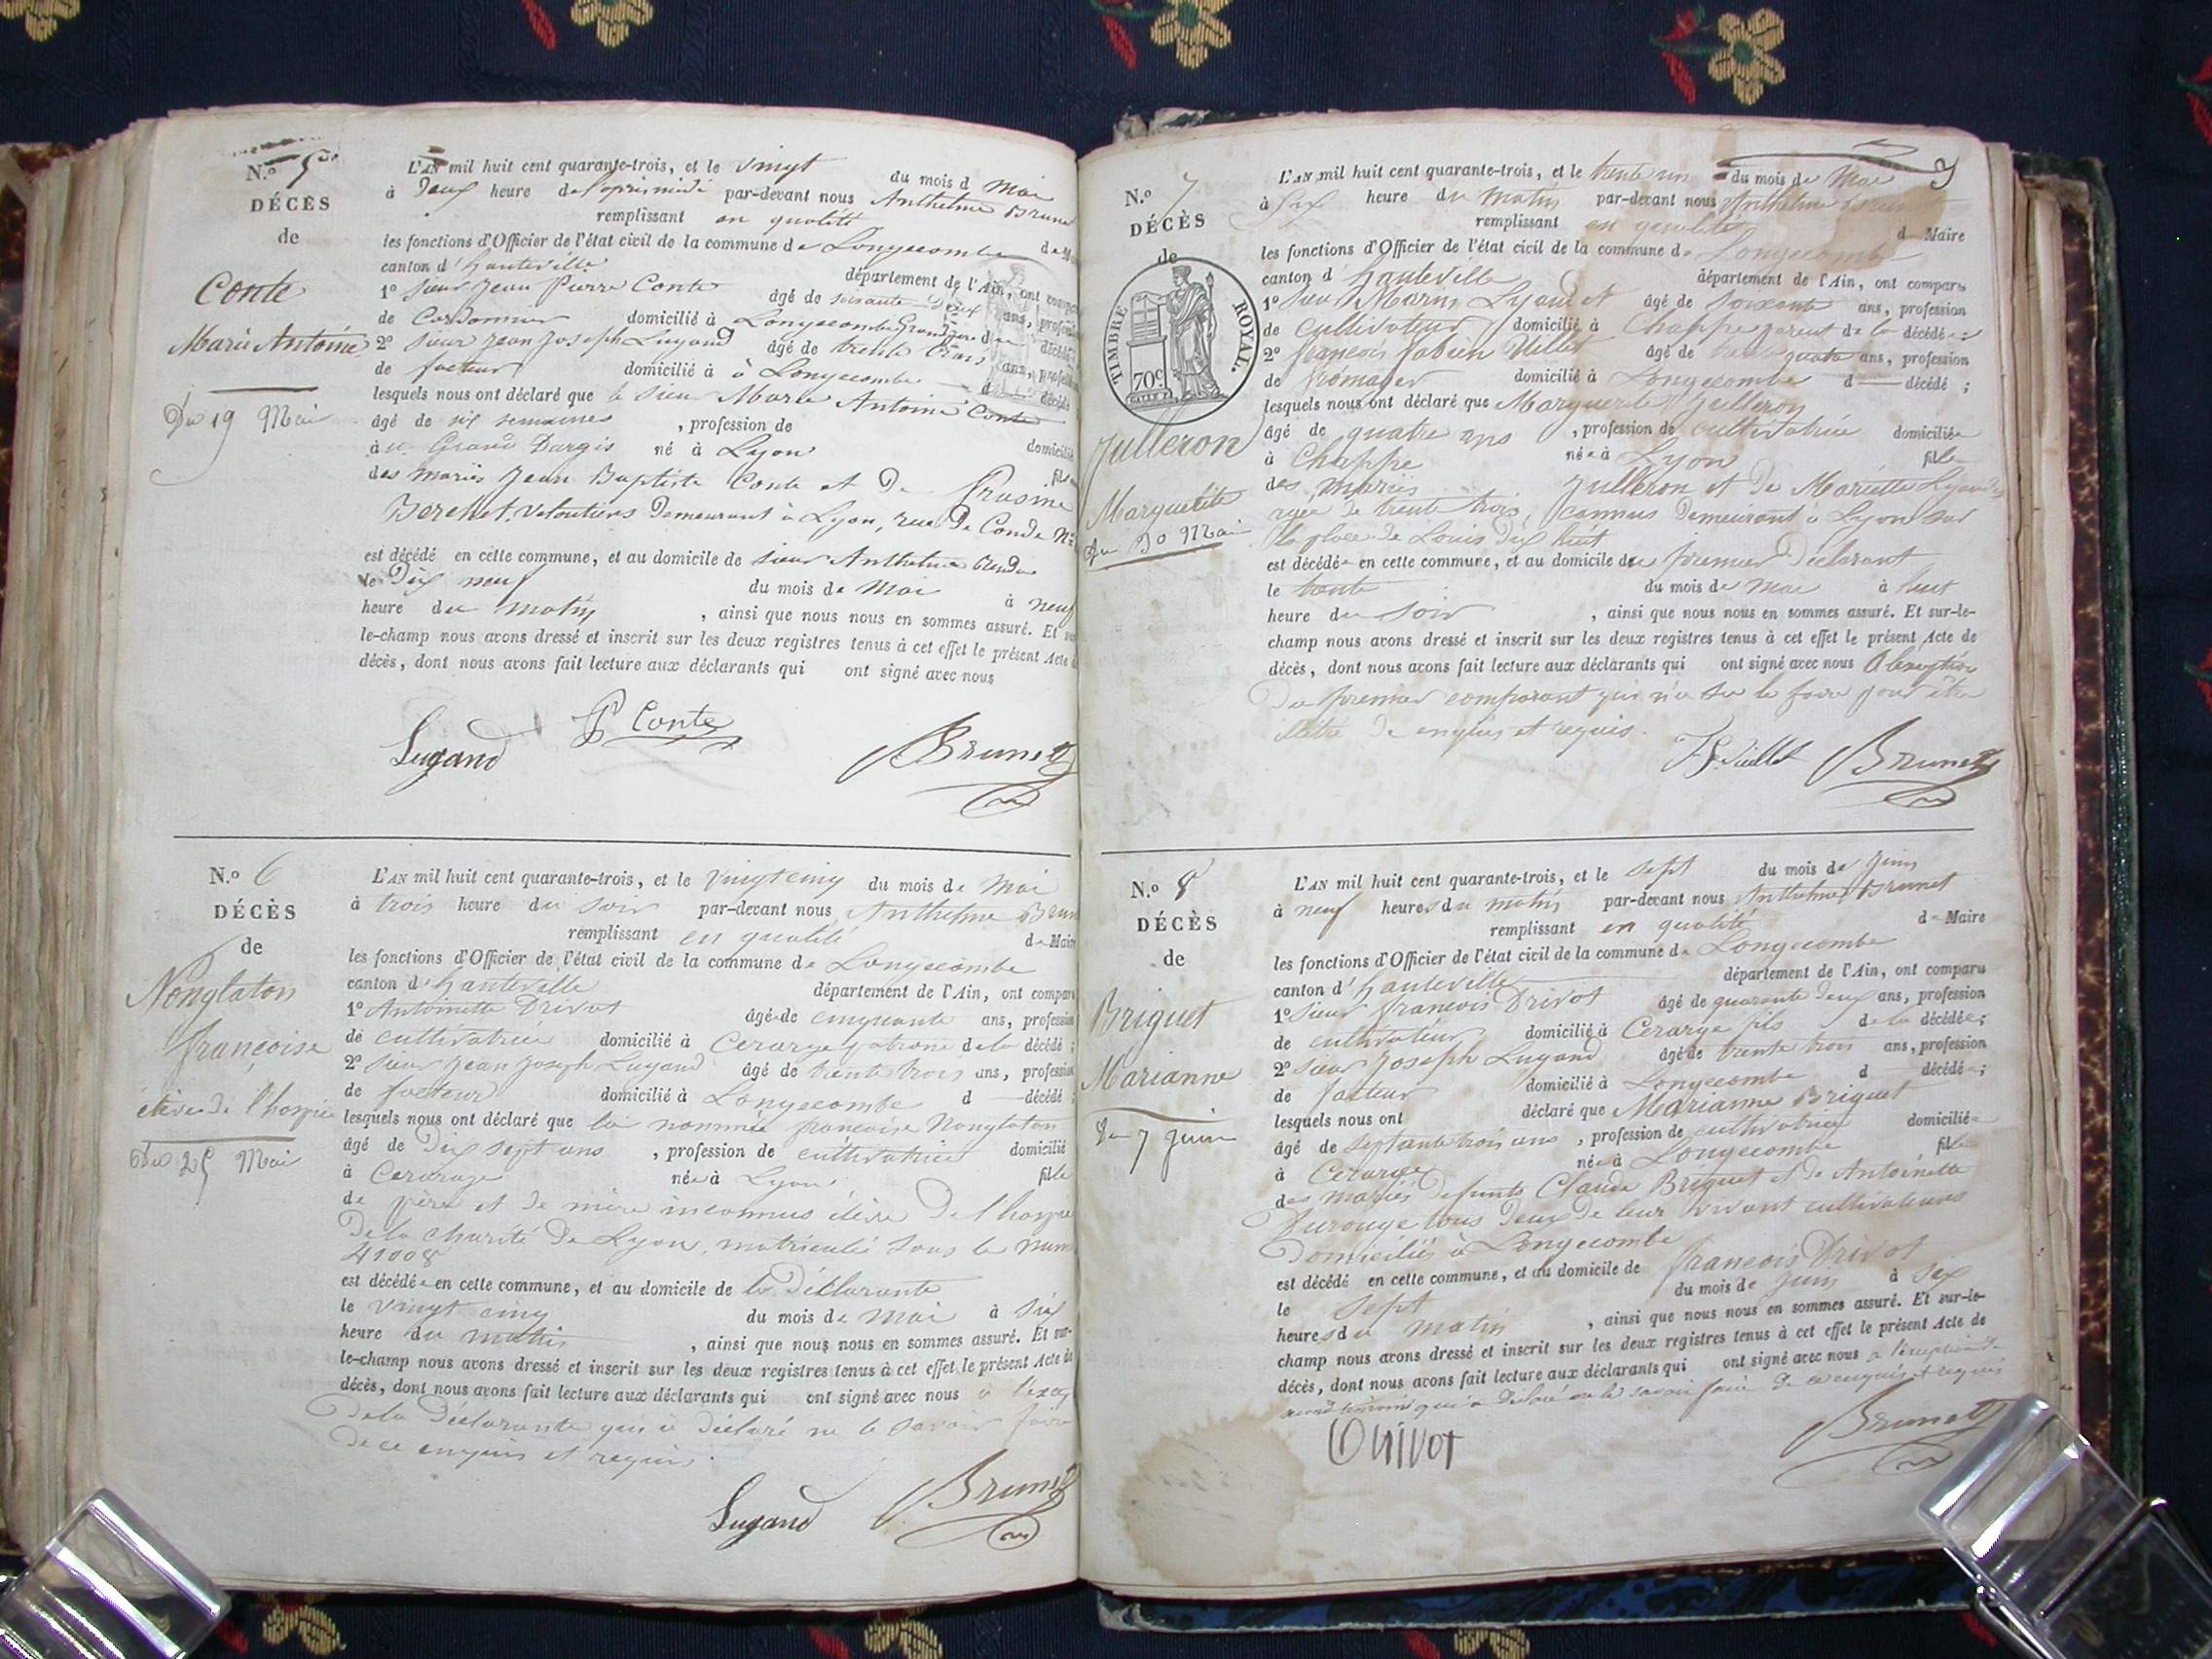 N.o 5
DÉCÈS
de
Conte
Marie Antoine
Du 19 Mai
L'AN mil huit cent quarante-trois, et le vingt du mois d mai
à deux heure de l'apres midi par-devant nous Anthelme Brune
remplissant en qualité
les fonctions d'Officier de l'état civil de la commune de Longecombe de M
canton d'hauteville département de l'Ain, ont compar
1o sieur Jean Pierre Conte âgé de soixante deux ans, profess
de Cordonnier domicilié à Longecombe Grand père du décédé
2o sieur Jean Joseph Lugand âgé de trente trois ans, profess
de facteur domicilié à à Longecombe d décédé
lesquels nous ont déclaré que le sieur Marie Antoine Conte
âgé de six semaines , profession de
à Grand Dargis né à Lyon domicilié
des mariés Jean Baptiste Conte et De fils
Berchet. Veloutiers Demeurant à Lyon, rue De Conde No
est décédé en cette commune, et au domicile de sieur Anthelme
le Dix neuf du mois de Mai à neuf
heure du matin , ainsi que nous nous en sommes assuré. Et su
le-champ nous avons dressé et inscrit sur les deux registres tenus à cet effet le présent Acte d
décès, dont nous avons fait lecture aux déclarants qui ont signé avec nous
Lugand JP Conte Brunet
N.o 6
DÉCÈS
de
Nonglaton
françoise
élève de l'hospice
Du 25 Mai
L'AN mil huit cent quarante-trois, et le vingt cinq du mois de Mai
à trois heure du soir par-devant nous Anthelme Brun
remplissant en qualité de Maire
les fonctions d'Officier de l'état civil de la commune de Longecombe
canton d'hauteville département de l'Ain, ont comparu
1o Antoinette Drivot âgée de cinquante ans, profession
de cultivatrice domicilié à Cerarge patrone de la décédé ;
2o sieur Jean Joseph Lugand âgé de trente trois ans, profession
de facteur domicilié à Longecombe d décédé ;
lesquels nous ont déclaré que la nommée francoise Nonglaton
âgé de Dix sept ans , profession de cultivatrice domicilié
à Cerarge née à Lyon fille
de père et de mère inconnus élève De l'hospice
De la charité De Lyon, matriculée sous le num
41008
est décédée en cette commune, et au domicile de la Déclarante
le vingt cinq du mois de mai à six
heure du matin , ainsi que nous nous en sommes assuré. Et sur-
le-champ nous avons dressé et inscrit sur les deux registres tenus à cet effet le présent Acte de
décès, dont nous avons fait lecture aux déclarants qui ont signé avec nous à l'exep
De la Déclarante qui a déclaré ne le savoir faire
De ce enquis et requis.
Lugand Brunet
9
N.o 7
DÉCÈS
de
TIMBRE ROYAL.
70c
Julleron
Marguerite
Du 30 Mai
L'AN mil huit cent quarante-trois, et le trente un du mois de Mai
à Six heure du matin par-devant nous Anthelme Brunet
remplissant en qualité d Maire
les fonctions d'Officier de l'état civil de la commune de Longecombe
canton d'hauteville département de l'Ain, ont comparu
1o sieur Marin Lyaudet âgé de soixante ans, profession
de cultivateur domicilié à Chappe parent de la décédée ;
2o francois fabien Uillet âgé de trente quatre ans, profession
de fromager domicilié à Longecombe d décédé ;
lesquels nous ont déclaré que Marguerite Julleron
âgé de quatre ans , profession de cultivatrice domiciliée
à Chappe née à Lyon fille
des mariés Julleron et De Mariette
agée de trente trois, Demeurant à Lyon sur
la place de Louis Dix huit
est décédée en cette commune, et au domicile du premier Déclarant
le trente du mois de mai à huit
heure du soir , ainsi que nous nous en sommes assuré. Et sur-le-
champ nous avons dressé et inscrit sur les deux registres tenus à cet effet le présent Acte de
décès, dont nous avons fait lecture aux déclarants qui ont signé avec nous A l'exeption
Du premier comparant qui n'a su le faire pour être
illétré De enquis et requis.
Brunet
N.o 8
DÉCÈS
de
Briguet
Marianne
Du 7 Juin
L'AN mil huit cent quarante-trois, et le sept du mois de Juin
à neuf heures du matin par-devant nous Anthelme Brunet
remplissant en qualité de Maire
les fonctions d'Officier de l'état civil de la commune de Longecombe
canton d'hauteville département de l'Ain, ont comparu
1o Sieur francois Drivot âgé de quarante deux ans, profession
de cultivateur domicilié à Cerarge fils de la décédée ;
2o sieur Joseph Lugand âgé de trente trois ans, profession
de facteur domicilié à Longecombe d décédé ;
lesquels nous ont déclaré que Marianne Briguet
âgé de septante trois ans , profession de cultivatrice domiciliée
à Cerarge née à Longecombe fille
des mariés defunts Claude Briguet et de Antoinette
tous Deux De leur vivant cultivateurs
Domiciliés à Longecombe
est décédé en cette commune, et au domicile de francois Drivot
le sept du mois de Juin à six
heures du matin , ainsi que nous nous en sommes assuré. Et sur-le-
champ nous avons dressé et inscrit sur les deux registres tenus à cet effet le présent Acte de
décès, dont nous avons fait lecture aux déclarants qui ont signé avec nous a l'exeption du
second témoin qui a Déclaré ne le savoir faire De ce enquis et requis
Drivot Brunet